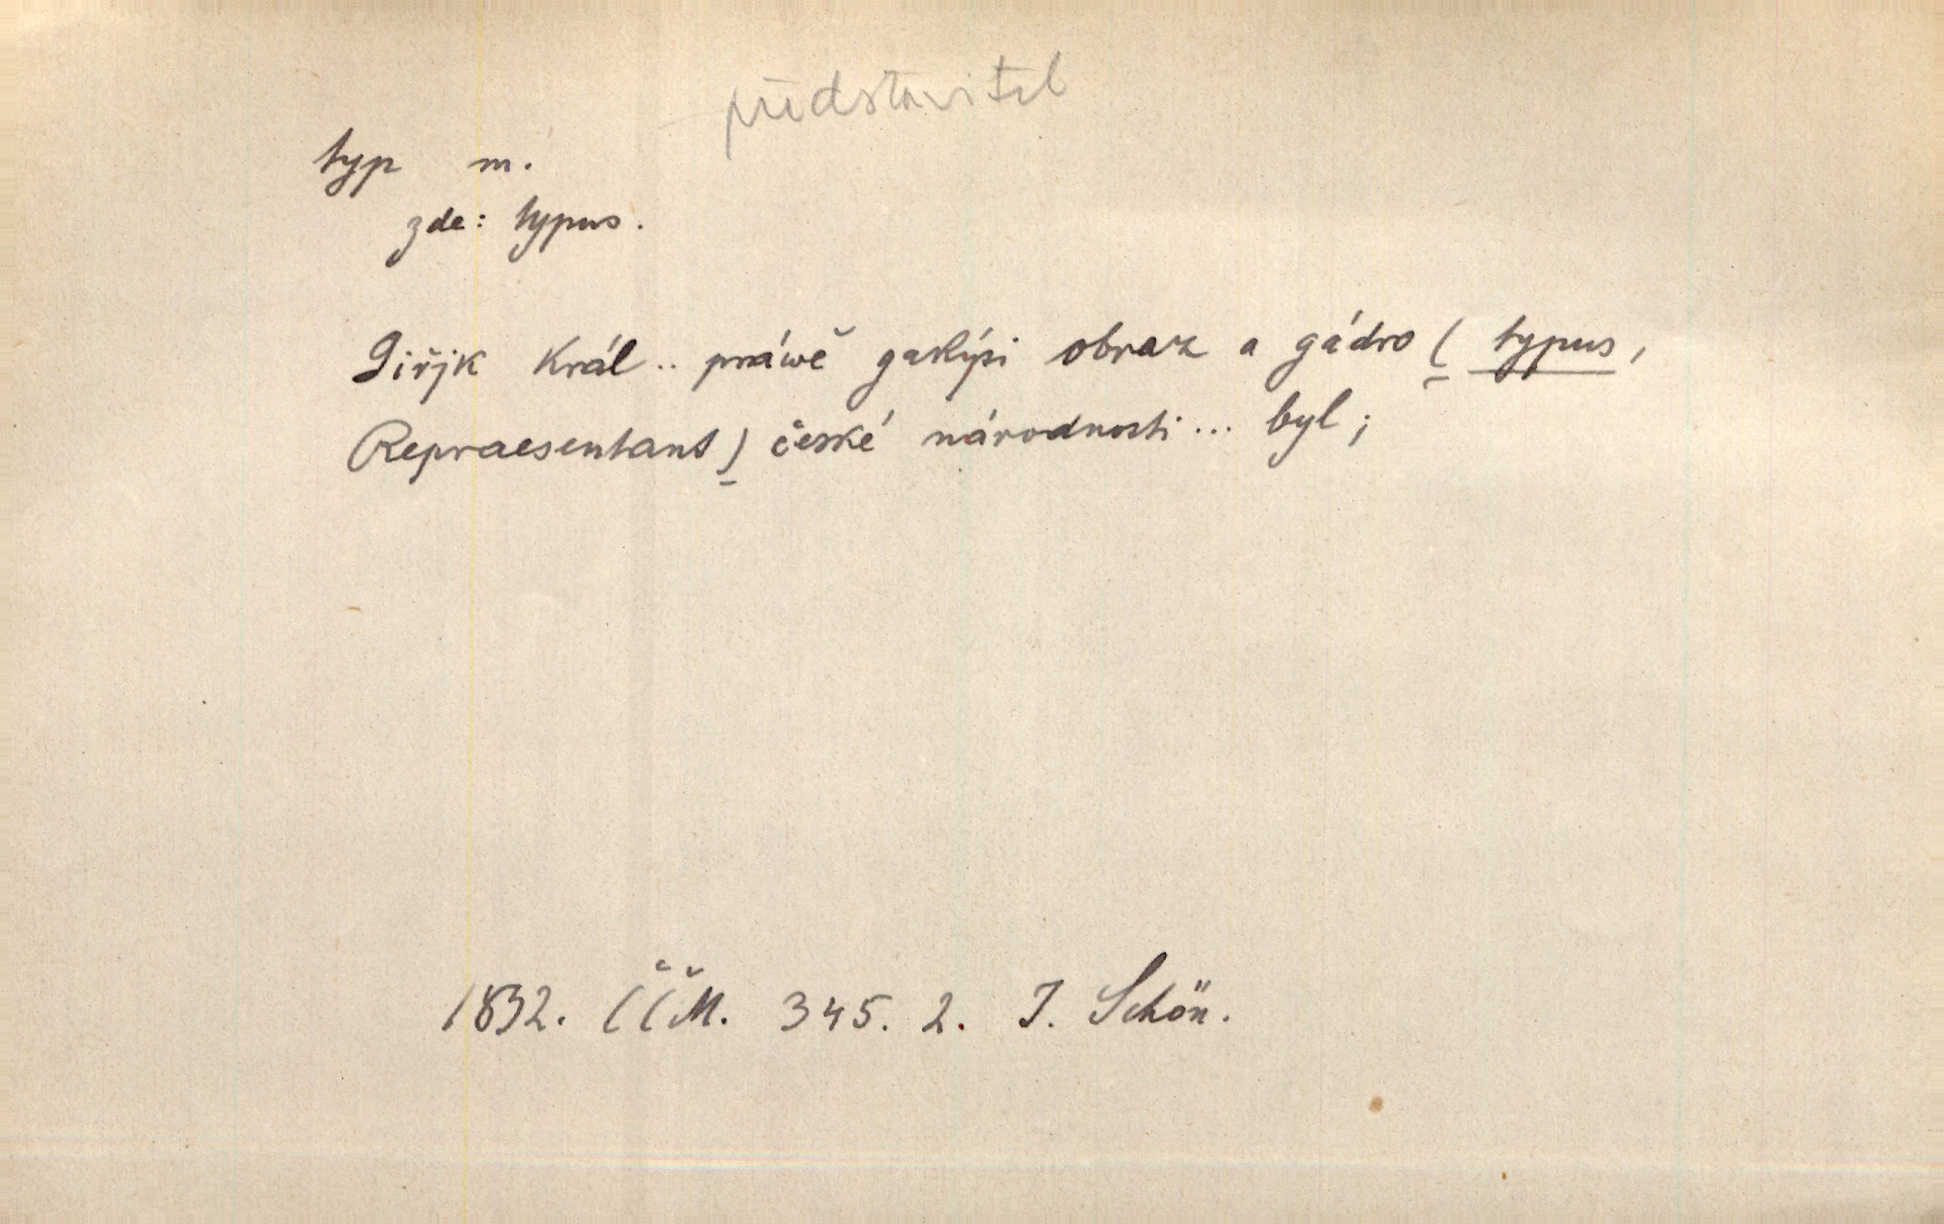 představitel
typ m.
zde: typus.
Giřjk Král .. práwě gakýsi obraz a gádro ( typus,
Repraesentant ) české národnosti ... byl ;
1832. ČČM. 345. 2. J. Schön.